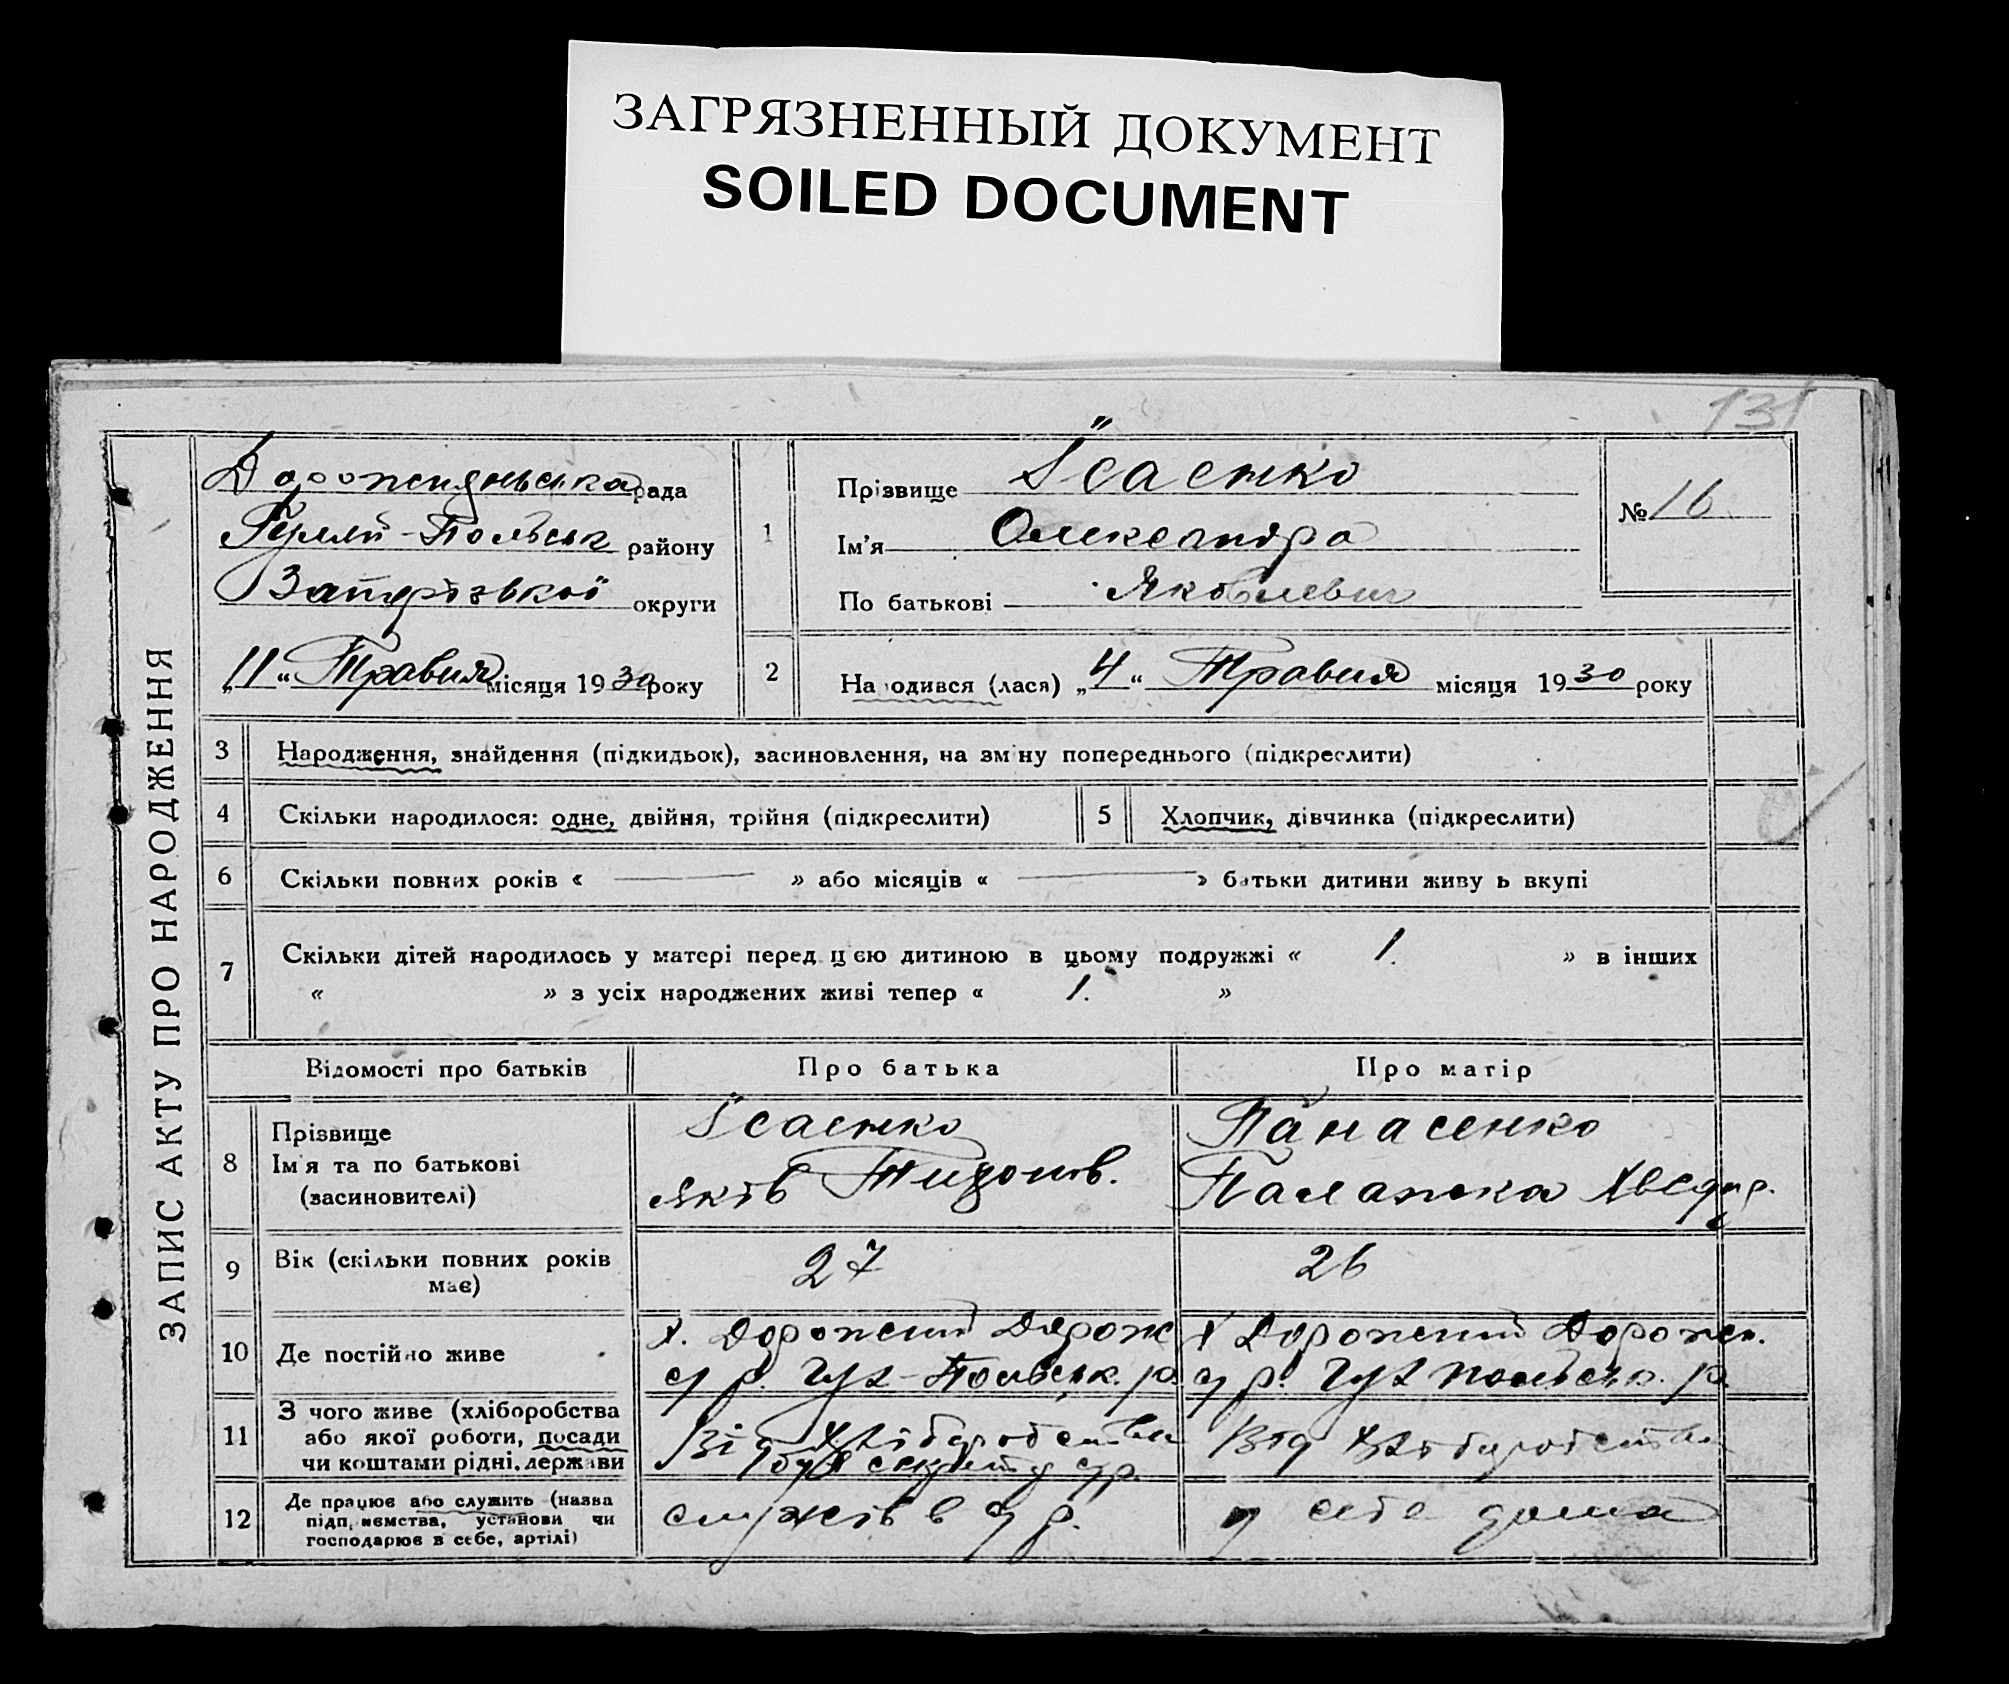 ЗАГРЯЗНЕННЫЙ ДОКУМЕНТ
SOILED DOCUMENT
131
ЗАПИС АКТУ ПРО НАРОДЖЕННЯ
рада
Гуляй-Польськ району
Запорізької округи
„11“ Травня місяця 1930 року
1
Прізвище Ісаєнко
Ім'я Олександра
По батькові Яковлевич
№ 16
2
Народився (лася) „4“ Травня місяця 1930 року
3 Народження, знайдення (підкидьок), засиновлення, на зміну попереднього (підкреслити)
4 Скільки народилося: одне, двійня, трійня (підкреслити)
5 Хлопчик, дівчинка (підкреслити)
6 Скільки повних років « — » або місяців « — » батьки дитини живуть вкупі
7 Скільки дітей народилось у матері перед цією дитиною в цьому подружжі « 1. » в інших
« » з усіх народжених живі тепер « 1. »
Відомості про батьків Про батька Про матір
8 Прізвище
Ім'я та по батькові
(засиновителі)
Ісаєнко
Яків
Панасенко
Палажка
9 Вік (скільки повних років
має)
27
26
10 Де постійно живе
х. Дорожений Дорож
с/р. Гул-Польськ. р.
х Дорожений Дорожен.
с/р. Гул Польськ. р.
11 З чого живе (хліборобства
або якої роботи, посади
чи коштами рідні, держави
Від хліборобства
був с/р.
Від хліборобства
12 Де працює або служить (назва
підприємства, установи чи
господарює в себе, артілі)
служив в с/р.
у себе дома